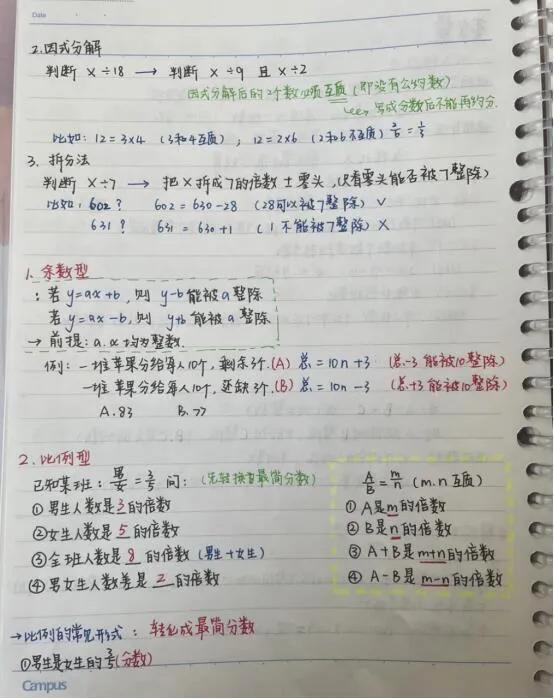 Date
2.因式分解
判断 X÷18 → 判断 X÷9 且 X÷2
因式分解后的2个数必须互质(即没有公约数)
写成分数后不能再约分.
比如: 12=3×4 (3和4互质), 12=2×6 (2和6不互质) 2/6=1/3
3. 拆分法
判断 X÷7 → 把X拆成7的倍数±零头,(只看零头能否被7整除)
比如: 602? 602=630-28 (28可以被7整除) ✓
631? 631=630+1 (1不能被7整除) ×
1. 余数型
: 若y=ax+b, 则 y-b能被a整除
若y=ax-b, 则 y+b能被a整除
→ 前提: a.x均为整数.
例: 一堆苹果分给每人10个, 剩余3个.(A) 总=10n+3 (总-3能被10整除)
一堆苹果分给每人10个, 还缺3个.(B) 总=10n-3 (总+3能被10整除)
A.83 B.77
2.比例型
已知某班: 男/女=3/5 问: (先转换为最简分数)
①男生人数是3的倍数
②女生人数是5的倍数
③全班人数是8的倍数 (男生+女生)
④男女生人数差是2的倍数
A/B=m/n (m.n互质)
① A是m的倍数
② B是n的倍数
③ A+B是m+n的倍数
④ A-B是m-n的倍数
→比例的常见形式: 转化成最简分数
①男生是女生的3/5(分数)
Campus